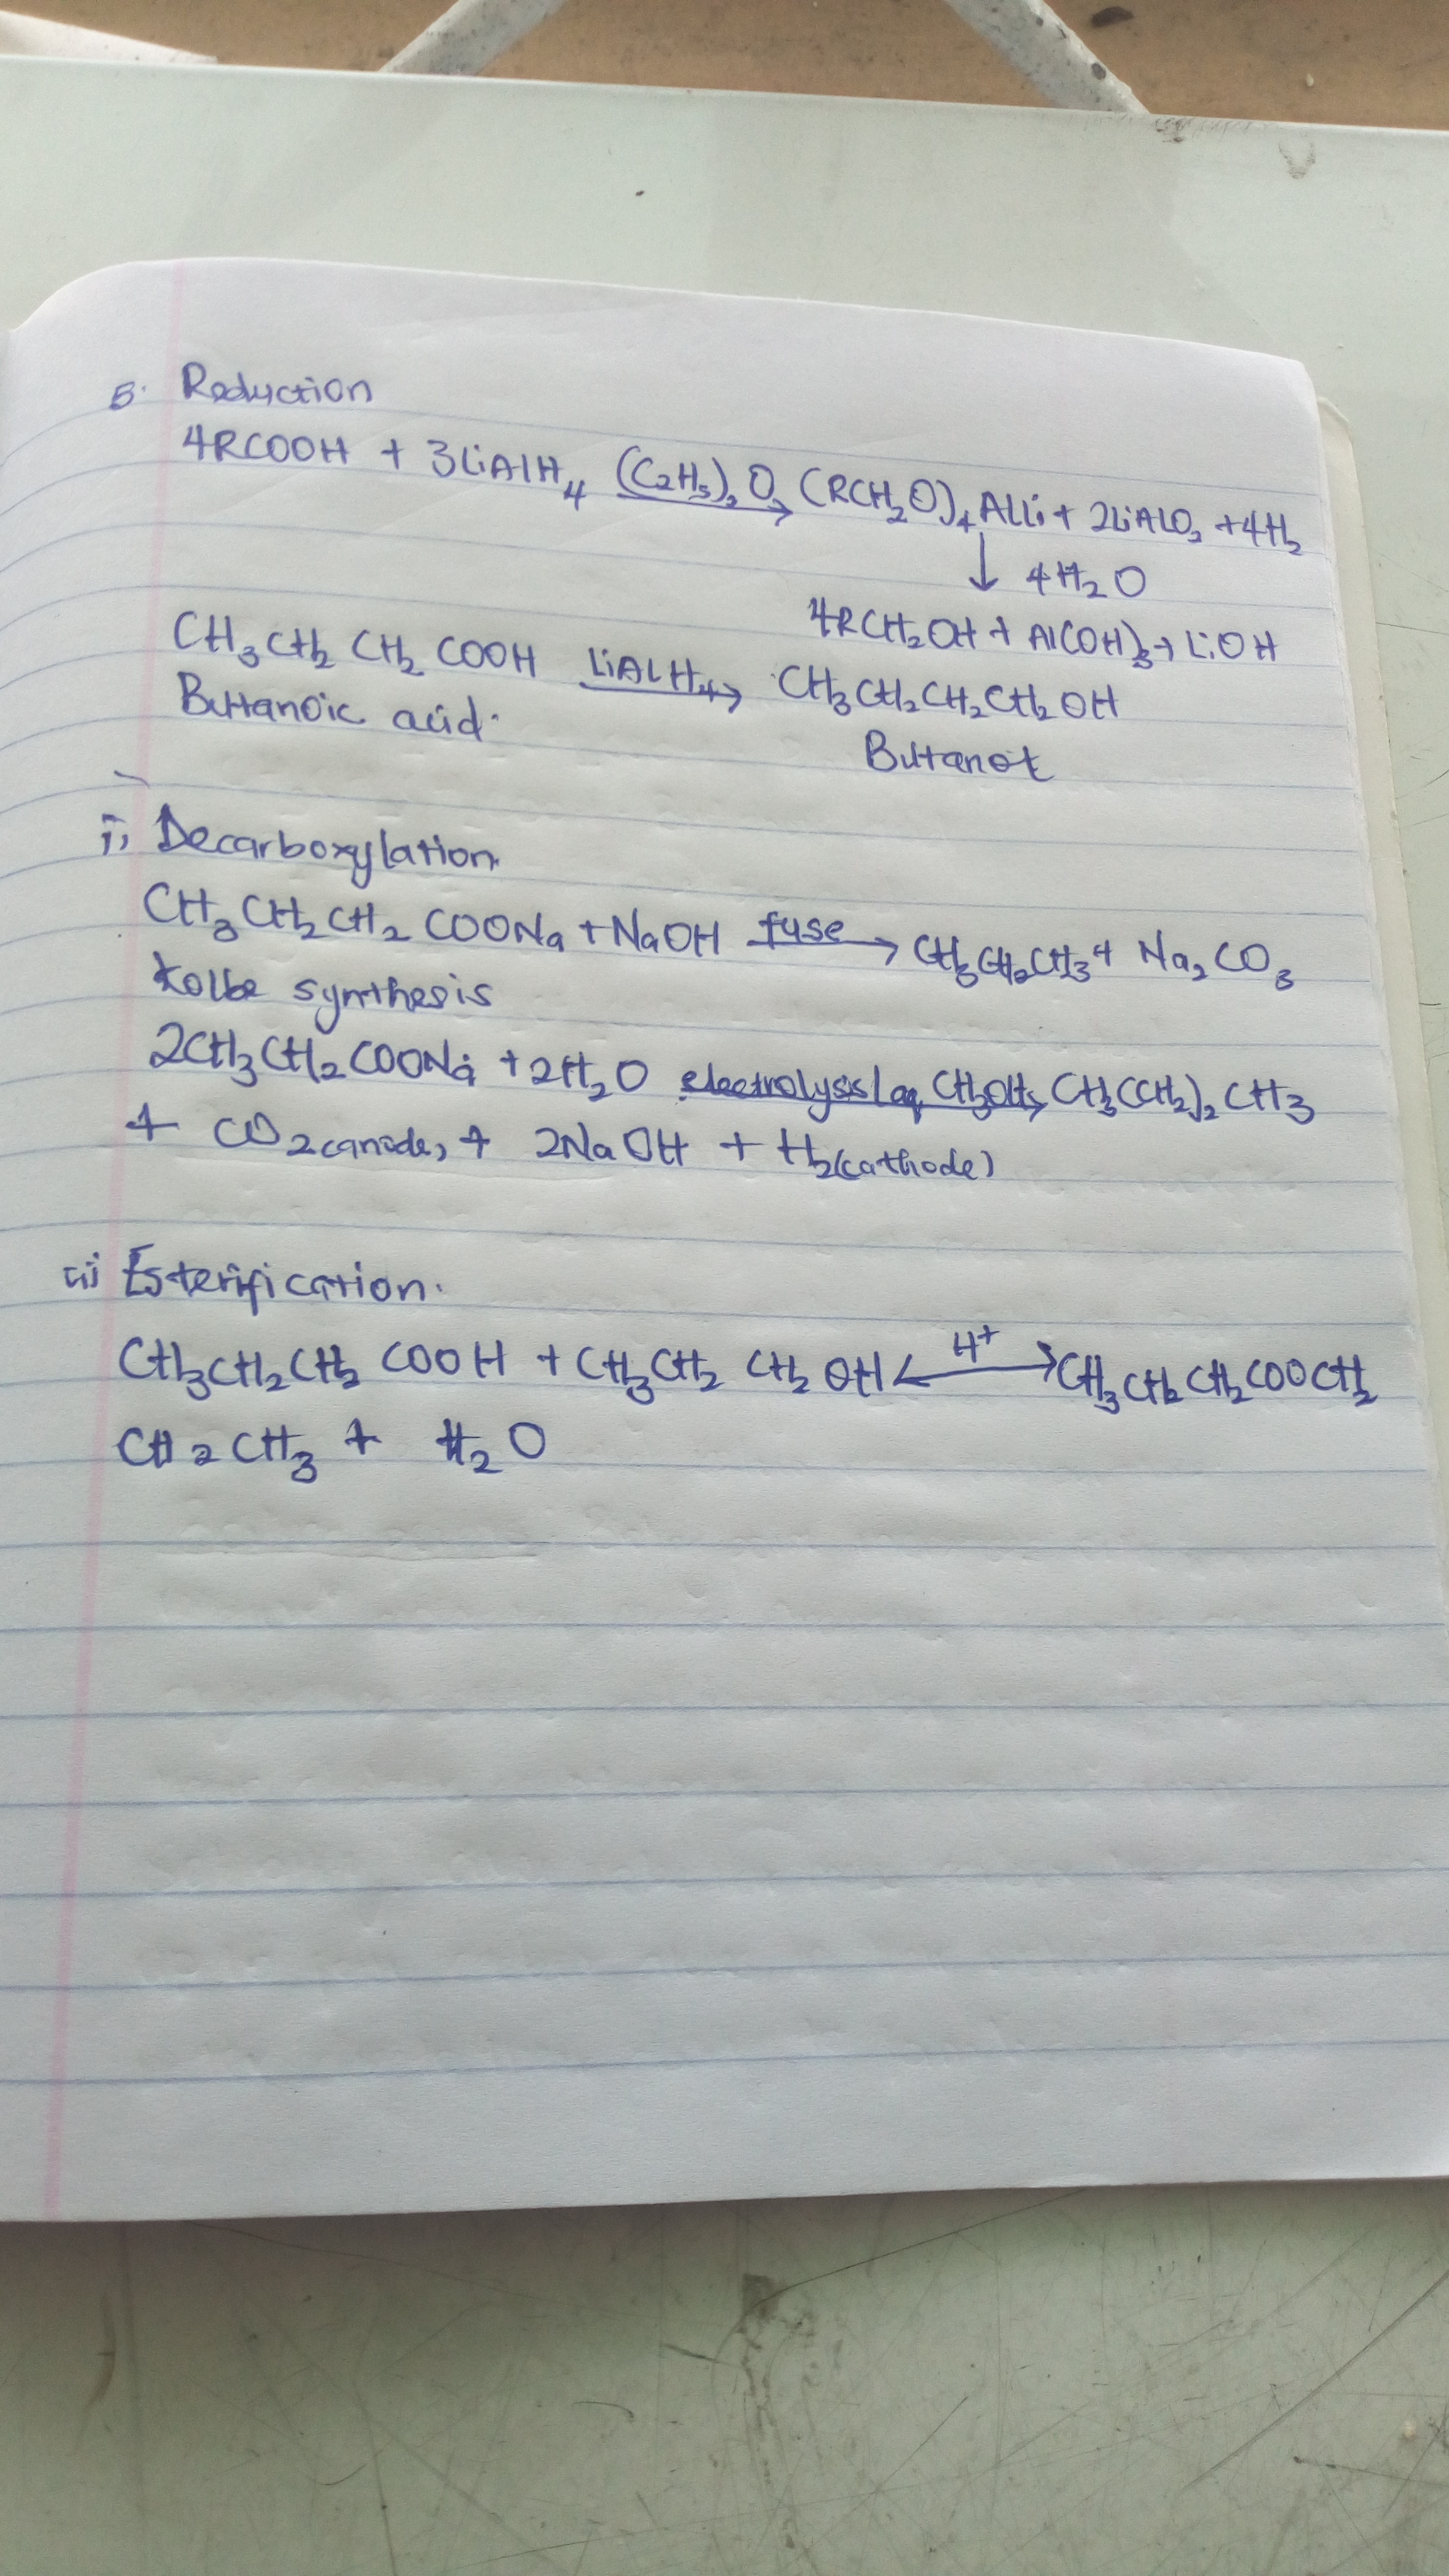 5. Reduction
4RCOOH + 3LiAlH₄ (C₂H₅)₂O → (RCH₂O)₄AlLi + 2LiAlO₂ + 4H₂
↓ 4H₂O
4RCH₂OH + Al(OH)₃ + LiOH
CH₃CH₂CH₂COOH LiAlH₄ → CH₃CH₂CH₂CH₂OH
Buttanoic acid.
Butanol
i) Decarboxylation
CH₃CH₂CH₂COONa + NaOH fuse → CH₃CH₂CH₃ + Na₂CO₃
Kolbe synthesis
2CH₃CH₂COONa + 2H₂O electrolysis/aq CH₃OH → CH₃(CH₂)₂CH₃
+ CO₂(anode) + 2NaOH + H₂(cathode)
ii) Esterification.
CH₃CH₂CH₂COOH + CH₃CH₂CH₂OH ⟷ H⁺ CH₃CH₂CH₂COOCH₂
CH₂CH₃ + H₂O